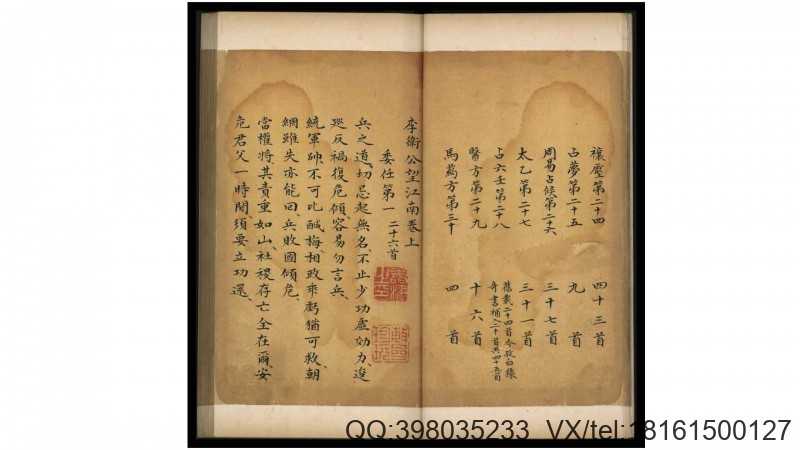 禳壓第二十四 四十三首
占夢第二十五 九首
周易占候第二十六 三十七首
太乙第二十七 三十一首
占六壬第二十八 舊載二十四首今攷白猿
奇書補入二十首共四十五首
醫方第二十九 十六首
馬藥方第三十 四首
李衛公望江南卷上
委任第一 二十六首
兵之道切忌起無名不止少功虛効力返
 災反禍復危傾容易勿言兵
統軍帥不可比鹹梅相政乖虧猶可救朝
綱雖失亦能回兵敗國傾危
當權將其責重如山社稷存亡全在爾安
危君父一時間須要立功還
QQ:398035233 VX/tel:18161500127